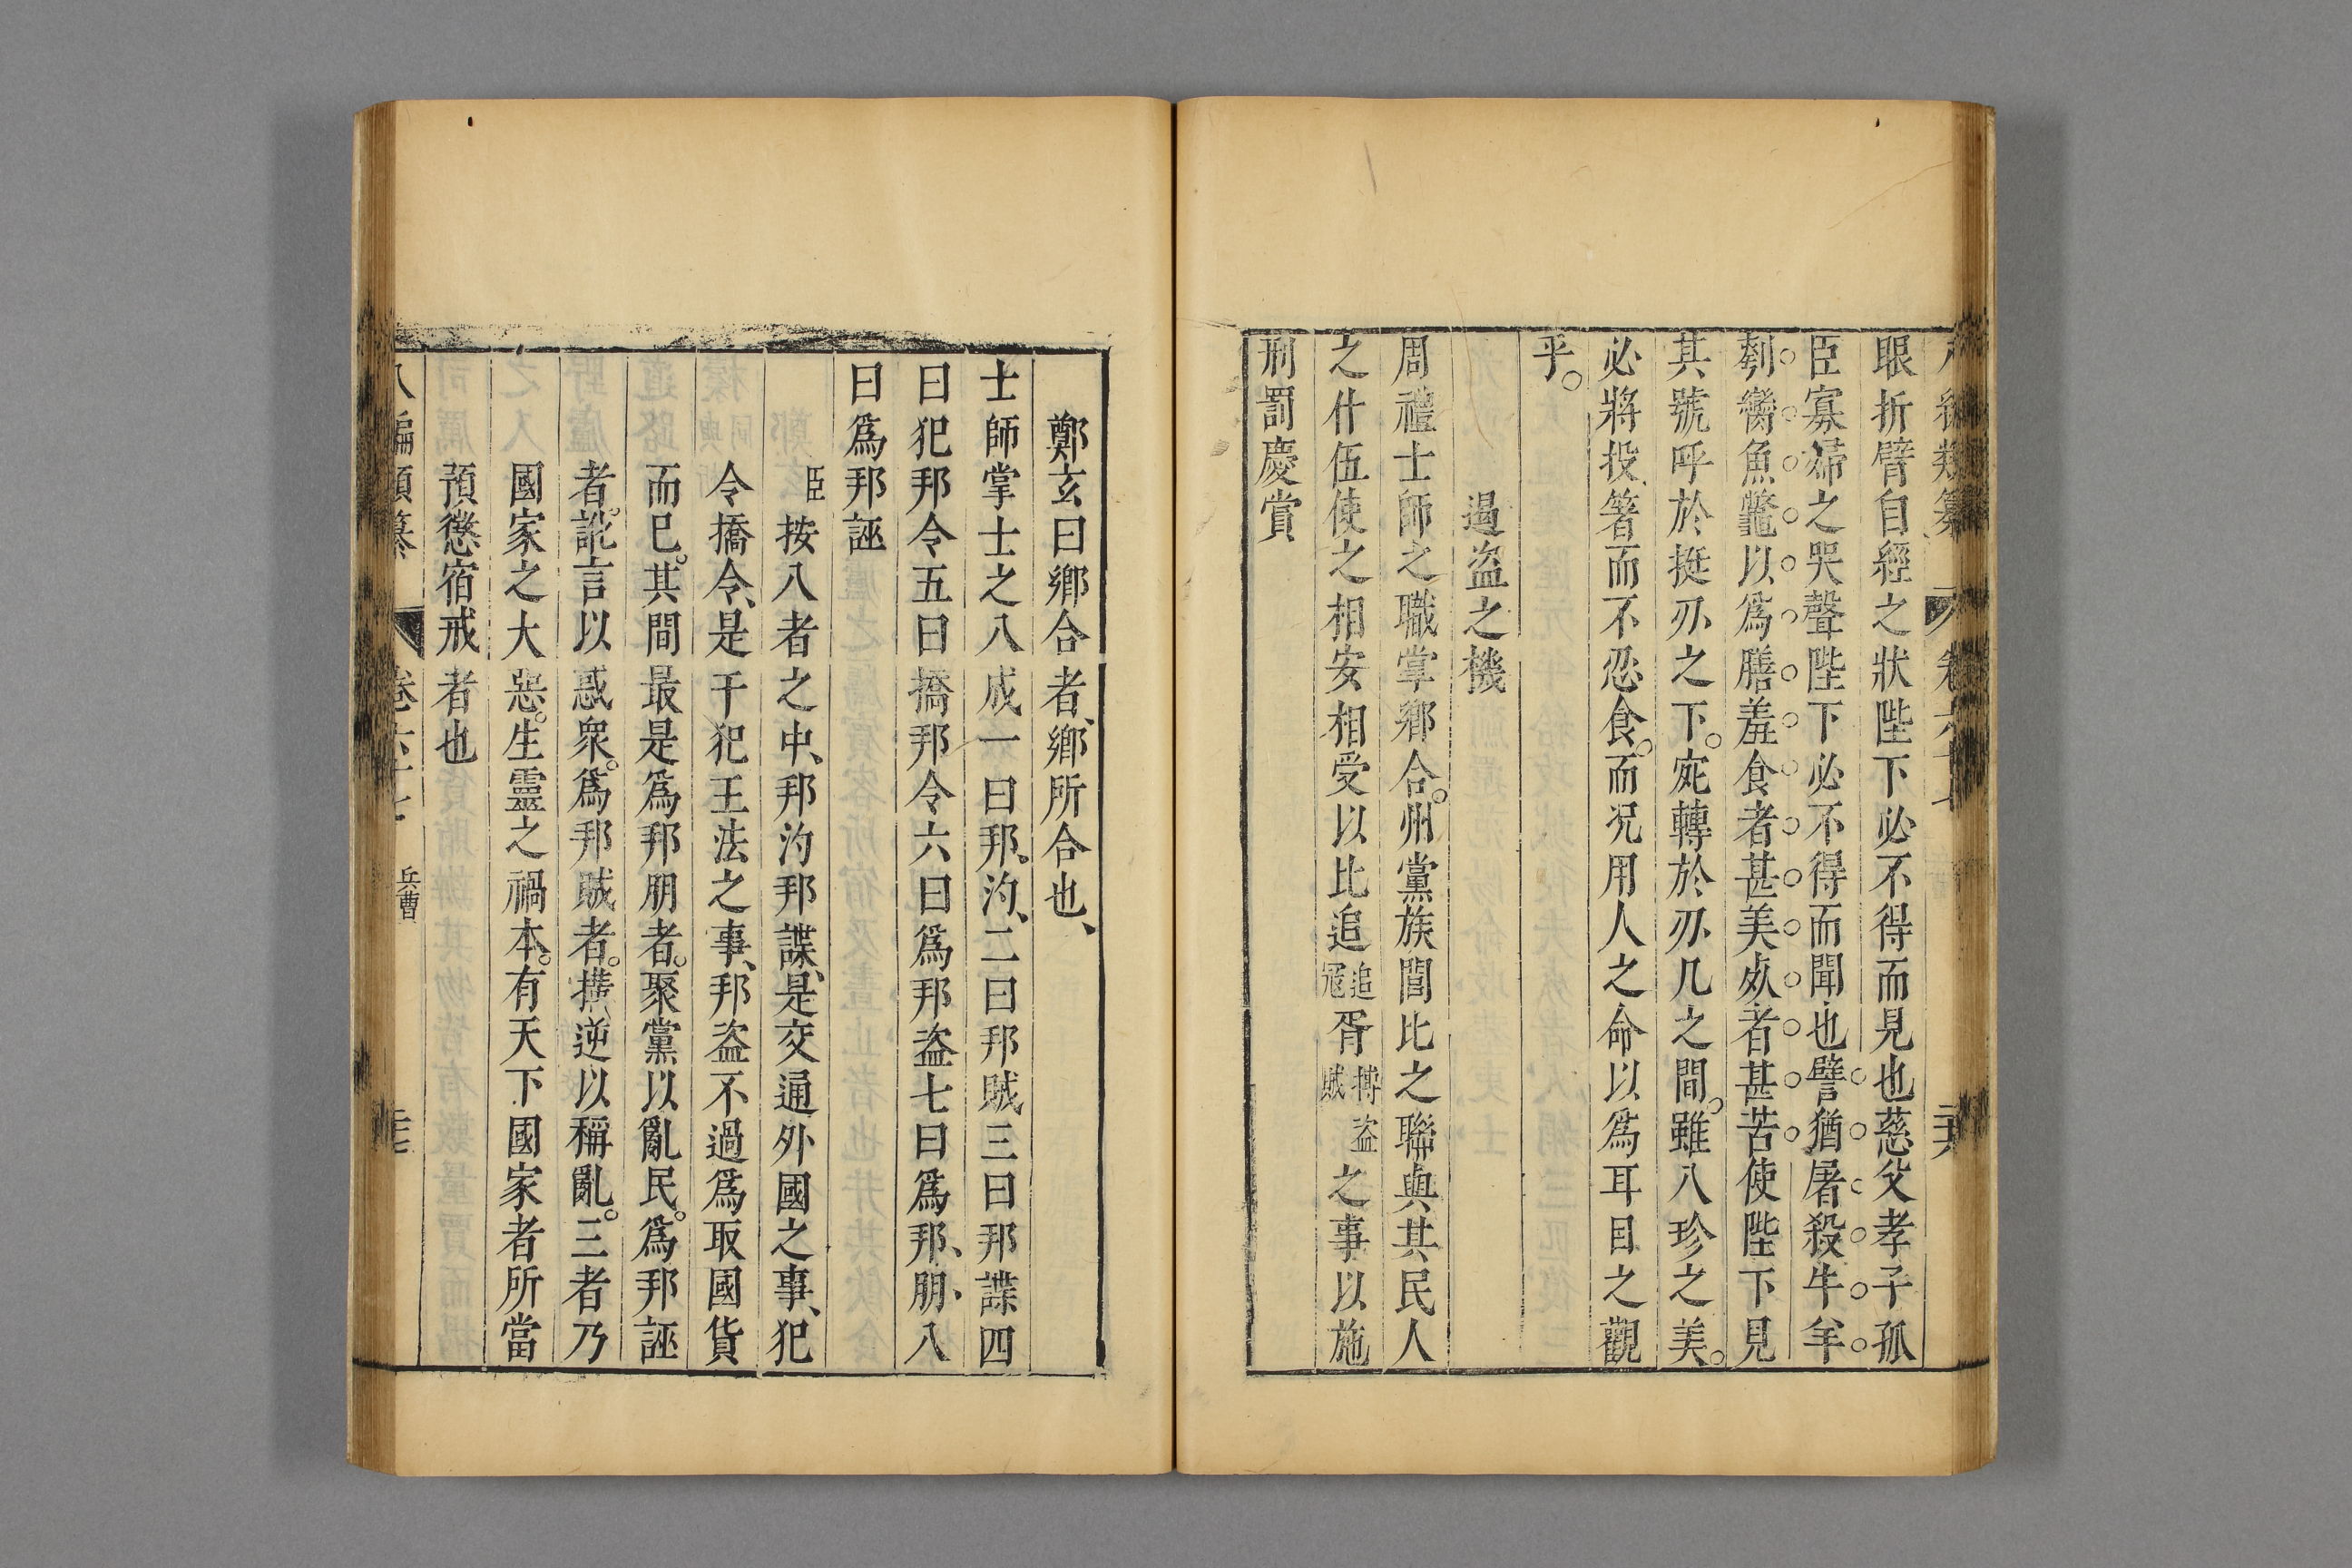 眼折臂自經之狀陛下必不得而見也慈父孝子孤
臣寡婦之哭聲陛下必不得而聞也譬猶屠殺牛羊
刳臠魚鼈以為膳羞食者甚美死者甚苦使陛下見
其號呼於挺刃之下宛轉於刃几之間雖八珍之美
必將投箸而不忍食而况用人之命以為耳目之觀
乎
遏盜之機
周禮士師之職掌鄉合州黨族閭比之聯與其民人
之什伍使之相安相受以比追追冦胥搏盜賊之事以施
刑罰慶賞
鄭玄曰鄉合者鄉所合也
士師掌士之八成一曰邦汋二曰邦賊三曰邦諜四
曰犯邦令五曰撟邦令六曰爲邦盜七曰爲邦朋八
曰爲邦誣
臣按八者之中邦汋邦諜是交通外國之事犯
令撟令是干犯王法之事邦盜不過爲取國貨
而已其間最是爲邦朋者聚黨以亂民爲邦誣
者訛言以惑衆爲邦賊者搆逆以稱亂三者乃
國家之大惡生靈之禍本有天下國家者所當
預懲宿戒者也
兵曹